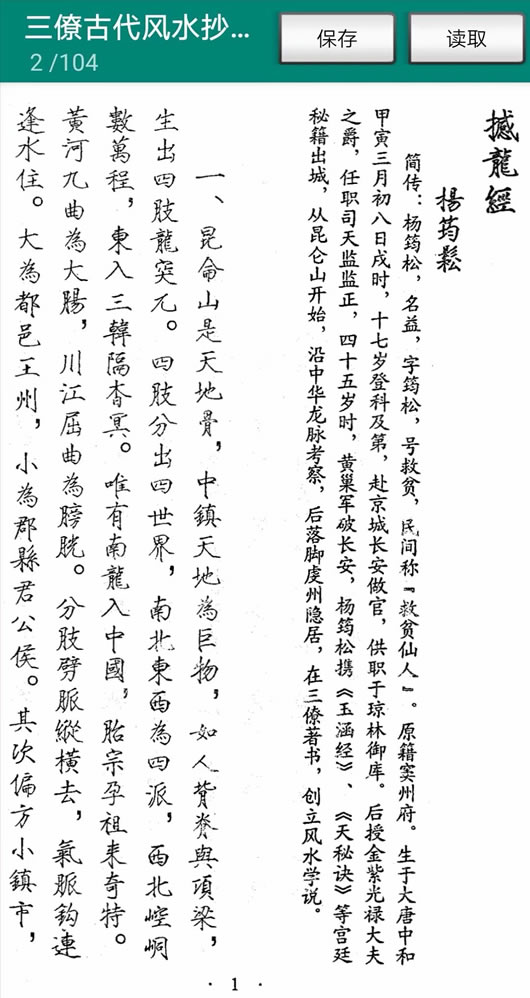 三僚古代风水抄...
2 /104
保存
读取
撼龍經
楊筠鬆
简传：杨筠松，名益，字筠松，号救贫，民间称『救贫仙人』。原籍窦州府。生于大唐中和
甲寅三月初八日戌时，十七岁登科及第，赴京城长安做官，供职于琼林御库。后授金紫光禄大夫
之爵，任职司天监监正，四十五岁时，黄巢军破长安，杨筠松携《玉涵经》、《天秘诀》等宫廷
秘籍出城，从昆仑山开始，沿中华龙脉考察，后落脚虔州隐居，在三僚著书，创立风水学说。
一、昆侖山是天地骨，中鎮天地為巨物，如人背脊與項梁，
生出四肢龍突兀。四肢分出四世界，南北東西為四派，西北崆峒
數萬程，東入三韓隔杳冥。唯有南龍入中國，胎宗孕祖来奇特。
黃河九曲為大腸，川江屈曲為膀胱。分肢劈脈縱橫去，氣脈鈎連
逢水住。大為都邑王州，小為郡縣君公侯。其次偏方小鎮市，
· 1 ·